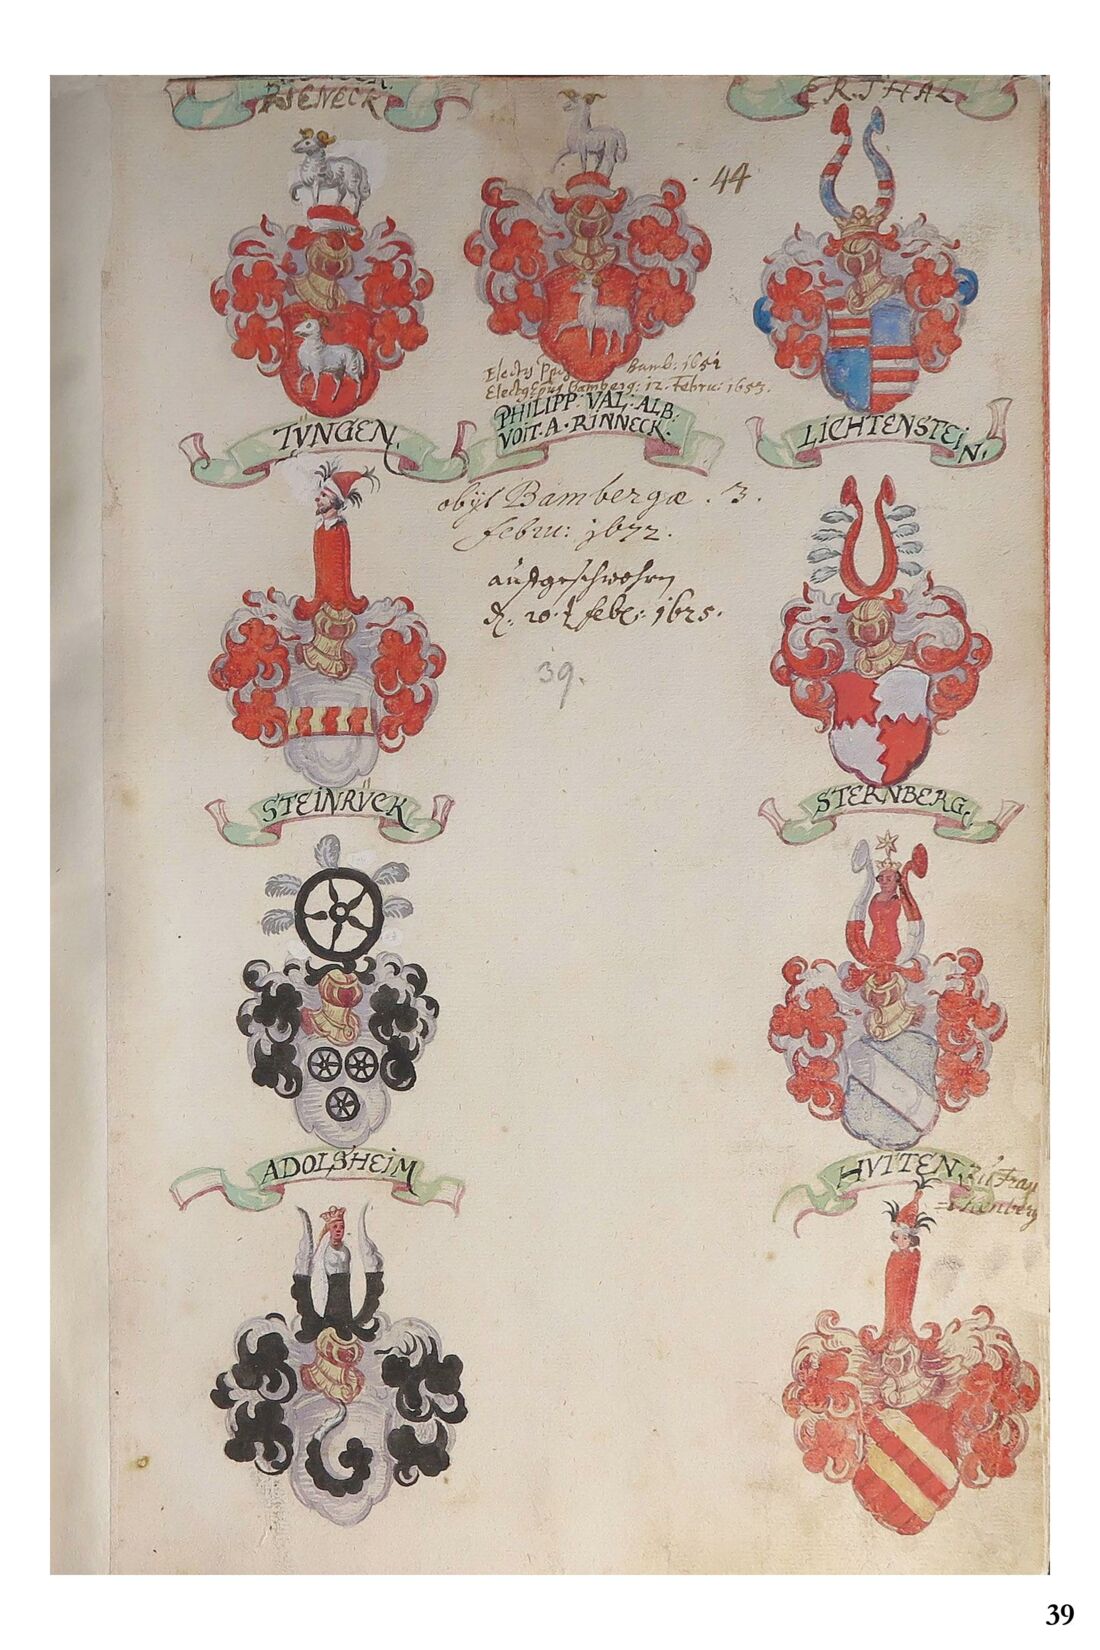 RIENECK
ERTHAL
44
Electus
Bamb: 1651
Bamberg: 12. Febru: 1653.
PHILIPP: VAL: ALB:
VOIT. A. RINNECK.
TÜNGEN.
LICHTENSTEIN.
obijt Bambergæ. 3.
febru: 1672.
aufgeschwohrn
d. 20. febr: 1625.
39.
STEINRÜCK
STERNBERG.
ADOLSHEIM
HVTTEN. zu Fran
=kenberg
39